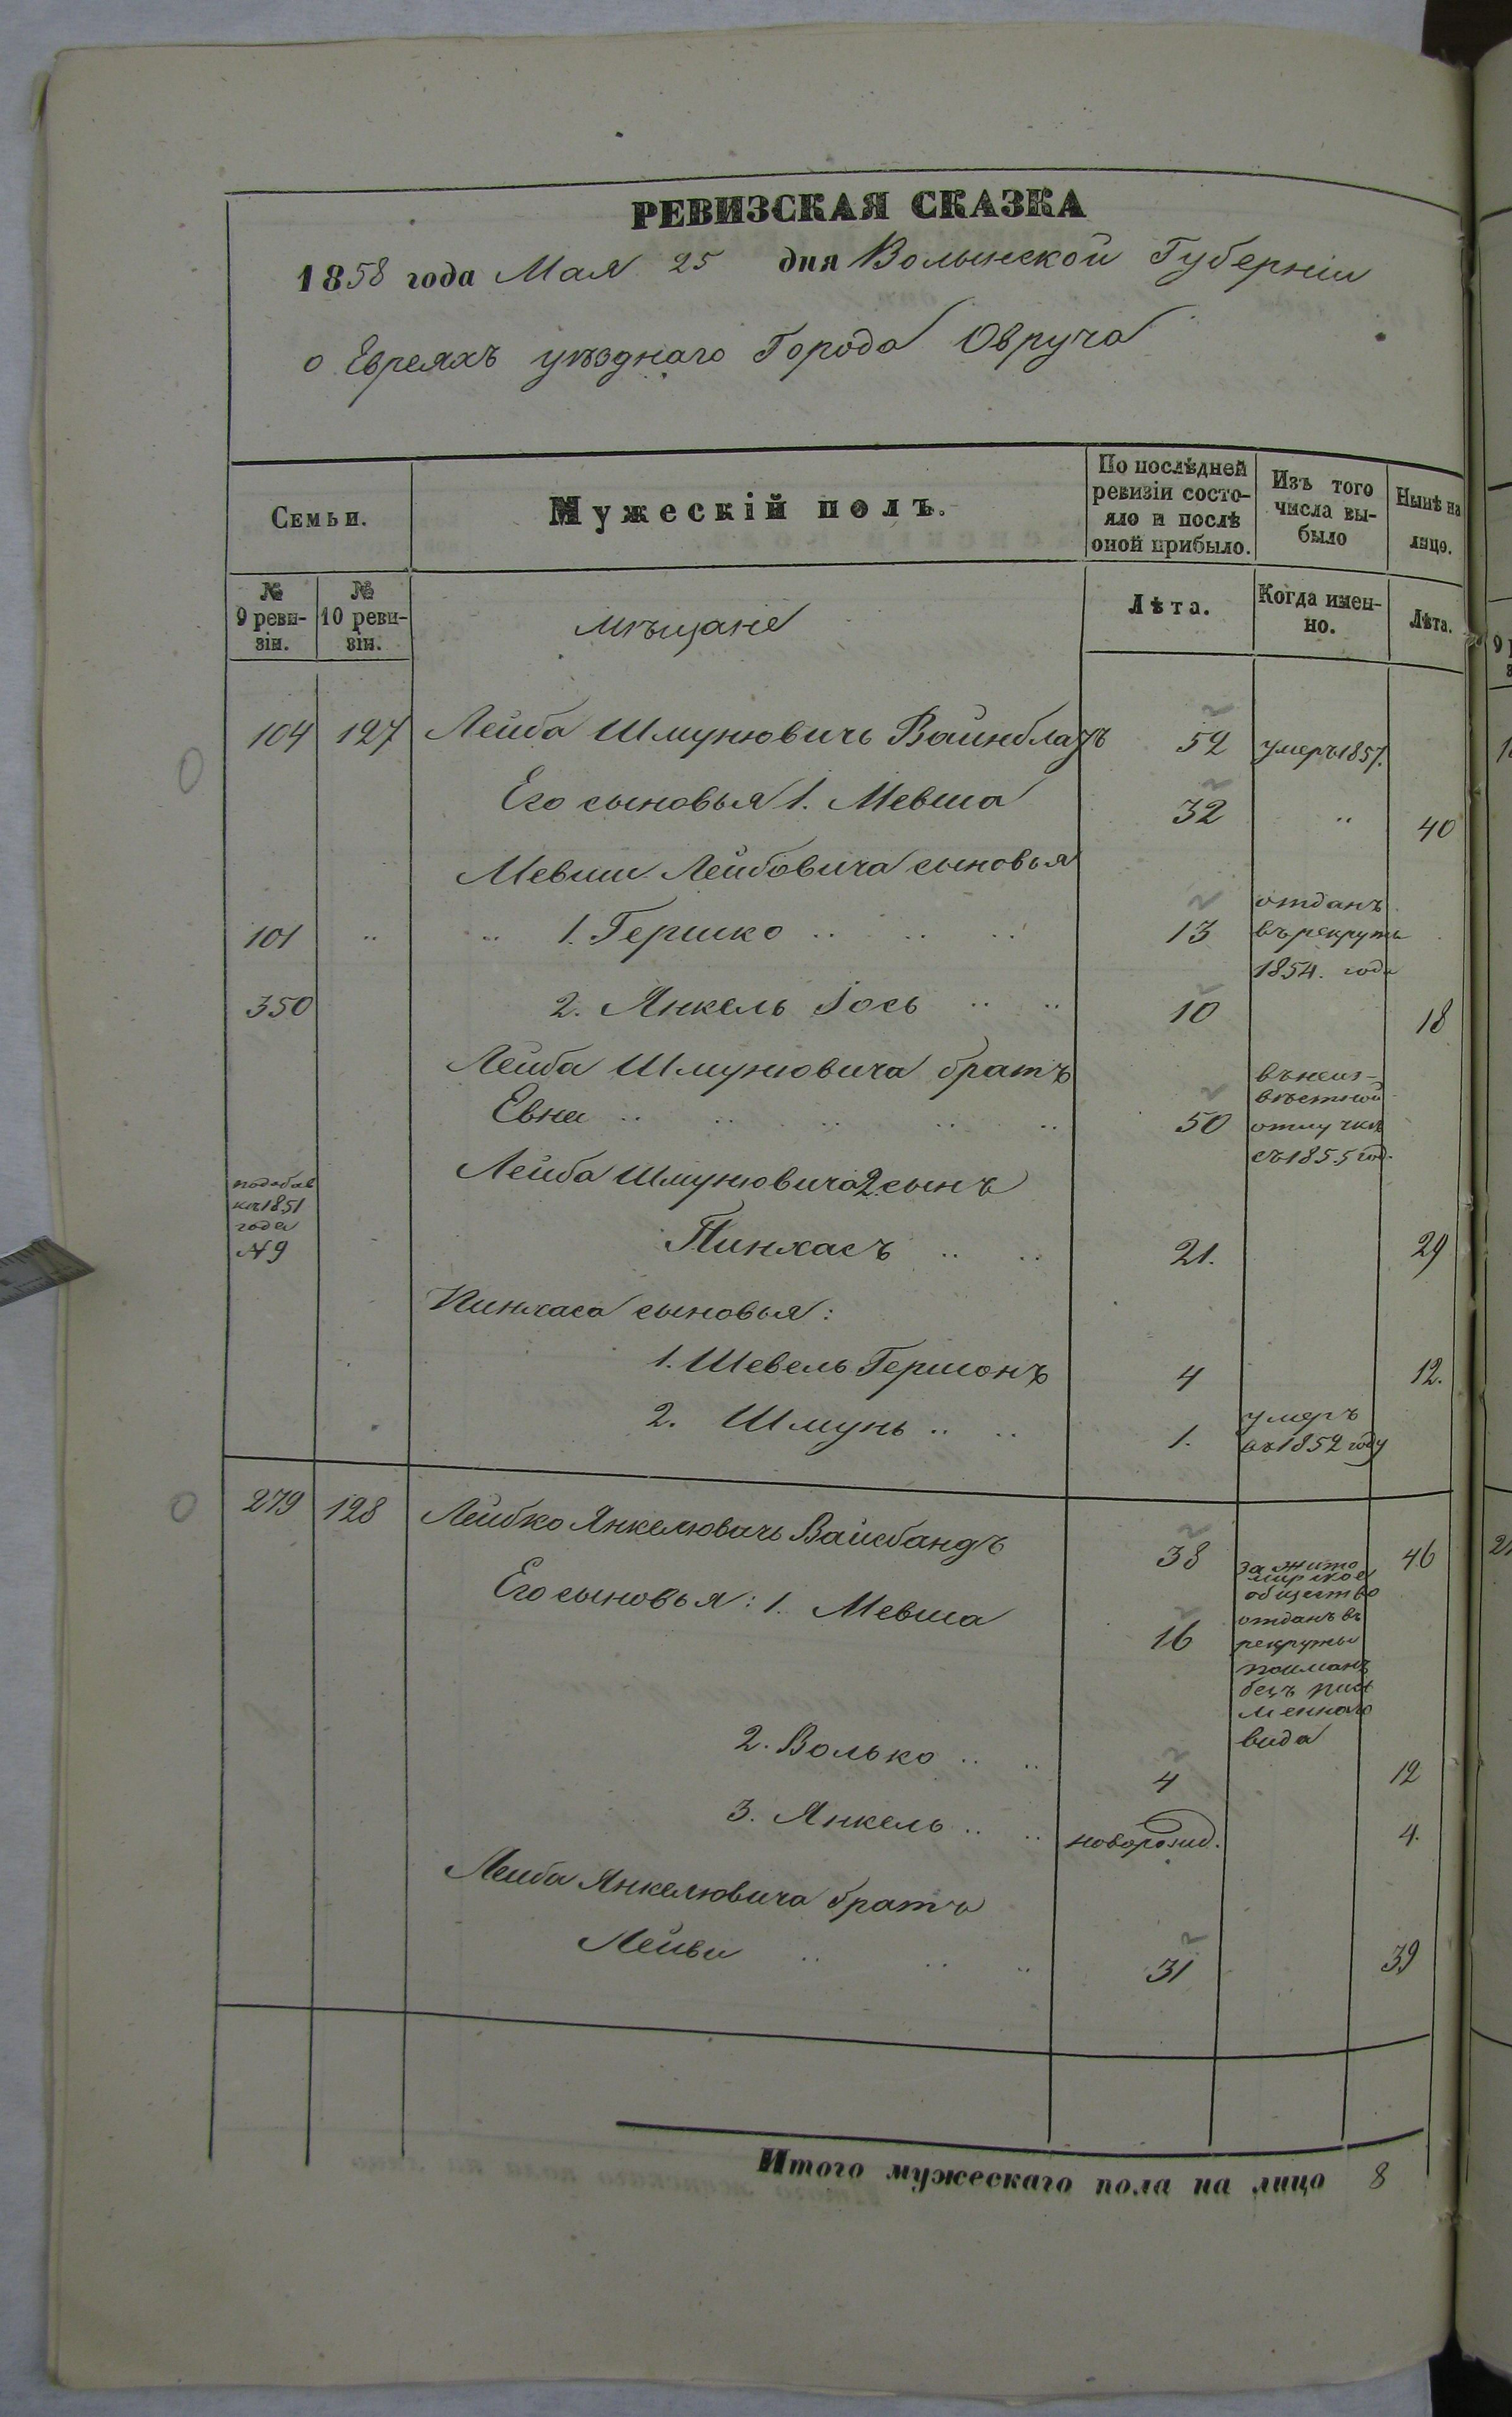 РЕВИЗСКАЯ СКАЗКА
1858 года Мая 25 дня Волынской Губерніи
о Евреяхъ уѣзднаго Города Овруча
Семьи.
Мужескій полъ.
По послѣдней
ревизіи состо-
яло и послѣ
оной прибыло.
Изъ того
числа вы-
было
Нынѣ на
лицо.
№
9 реви-
зіи.
№
10 реви-
зіи.
мѣщане
Лѣта.
Когда имен-
но.
Лѣта.
104 127 Лейба Шмунювичь Вайнблатъ 52 умеръ 1857.
Его сыновья 1. Мевша 32 „ 40
Мевши Лейбовича сыновья
101 „ „ 1. Гершко 13 отданъ
въ рекруты
1854. года
350 2. Янкель Іось 10 18
Лейба Шмунювича братъ
Евна 50 въ неиз-
вѣстной
отлучкѣ
съ 1855 год.
Лейба Шмунювича 2. сынъ
1851
года
№ 9
Пинхасъ 21. 29
Пинхаса сыновья:
1. Шевель Гершонъ 4 12.
2. Шмунь 1. умеръ
въ 1852 году
279 128 Лейбко Янкелювичь Вайсбандъ 38 46
Его сыновья: 1. Мевша 16 за жито
мирское
общество
отданъ въ
рекруты
пойманъ
безъ пись
меннаго
вида
2. Волько 4 12
3. Янкель новорожд. 4.
Лейба Янкелювича братъ
Лейви 31 39
Итого мужескаго пола на лицо 8